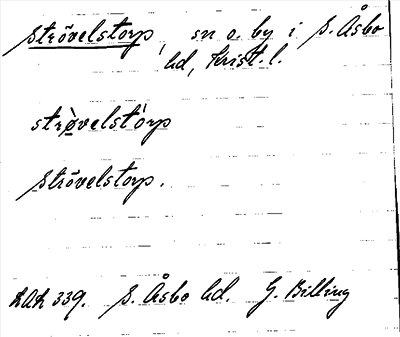 Strövelstorp, sn o. by i S. Åsbo
hd, Krist. l.
strø̀velstórp
Strövelstorp.
LAL 339. S. Åsbo hd. G. Billing